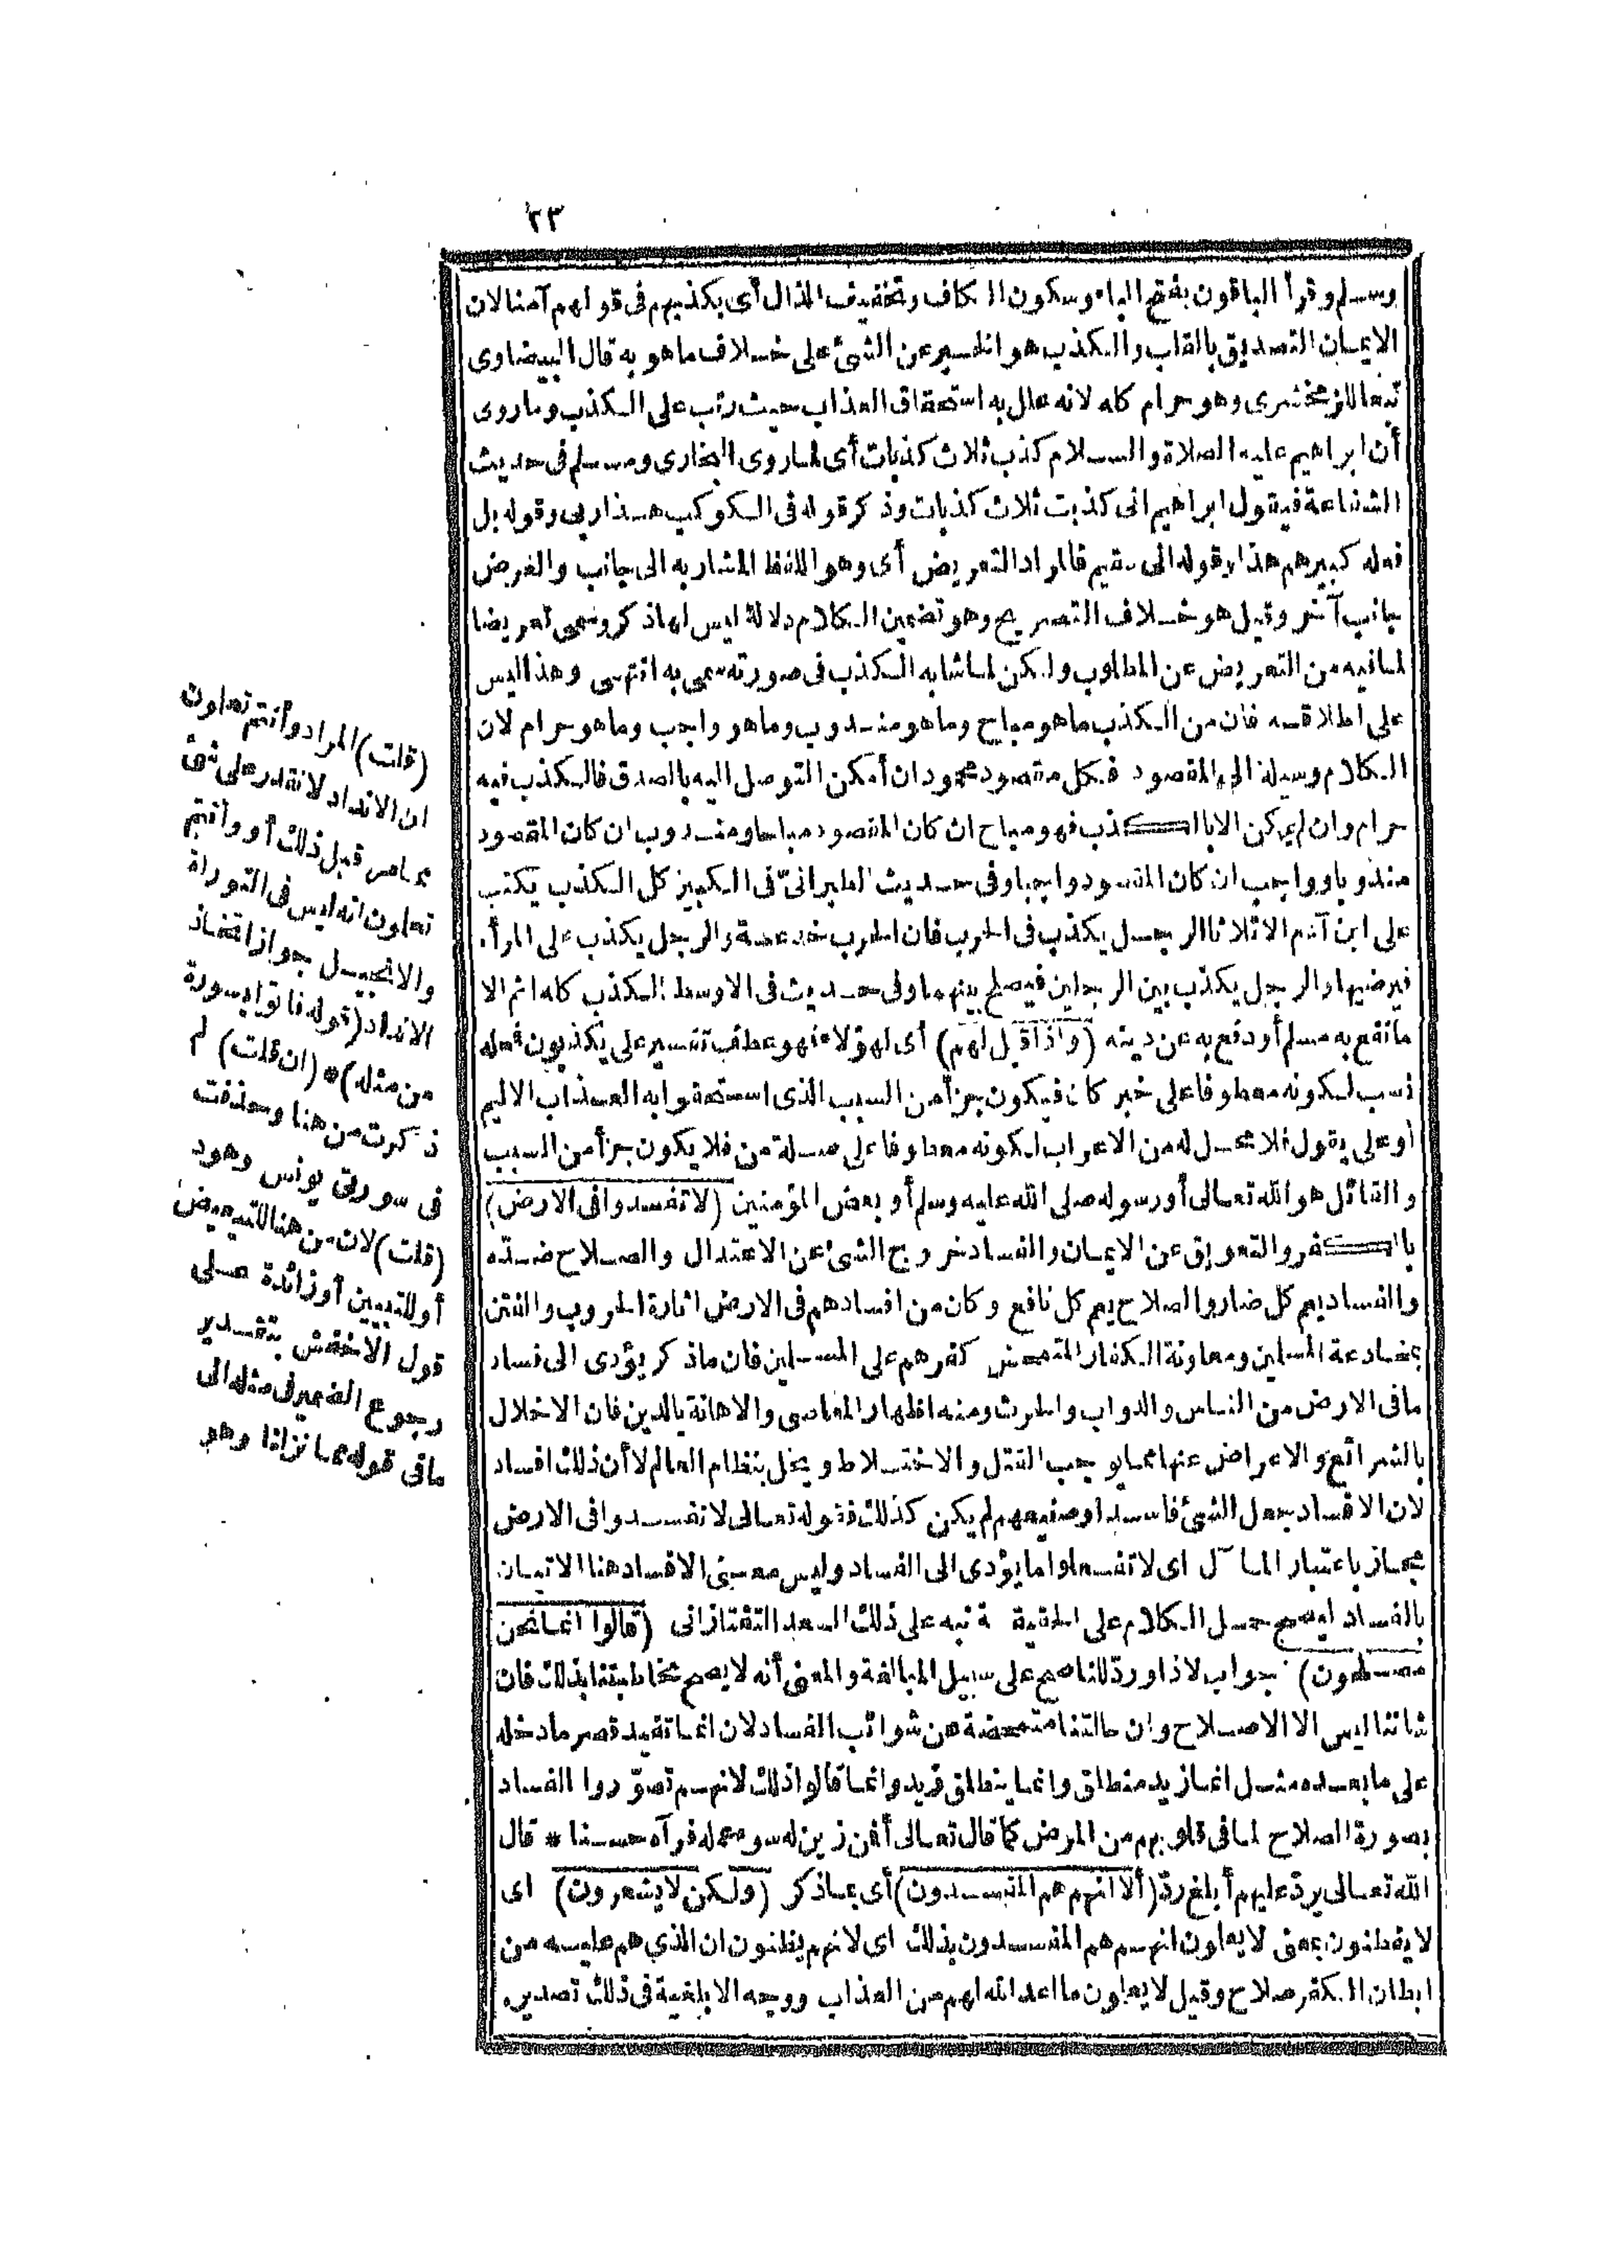 ٢٣
وسلم وقرأ الباقون بفتح الياء وسكون الكاف وتخفيف الذال أى بكذبهم فى قولهم آمنا لان
الايمان التصديق بالقلب والكذب هو الخبر عن الشئ على خلاف ما هو به قال البيضاوى
تبعا للزمخشرى وهو حرام كله لانه علل به استحقاق العذاب حيث رتب على الكذب وما روى
أن ابراهيم عليه الصلاة والسلام كذب ثلاث كذبات أى لما روى البخارى ومسلم فى حديث
الشفاعة فيقول ابراهيم انى كذبت ثلاث كذبات وذكر قوله فى الكوكب هذا ربى وقوله بل
فعله كبيرهم هذا وقوله انى سقيم فالمراد التعريض أى وهو اللفظ المشار به الى جانب والغرض
جانب آخر وقيل هو خلاف التصريح وهو تضمين الكلام دلالة ليس لها ذكر وسمى تعريضا
لما فيه من التعريض عن المطلوب ولكن لما شابه الكذب فى صورته سمى به انتهى وهذا ليس
على اطلاقه فان من الكذب ما هو مباح وما هو مندوب وما هو واجب وما هو حرام لان
الكلام وسيلة الى المقصود فكل مقصود محمود ان أمكن التوصل اليه بالصدق فالكذب فيه
حرام وان لم يمكن الا بالكذب فهو مباح ان كان المقصود مباحا ومندوب ان كان المقصود
مندوبا وواجب ان كان المقصود واجبا وفى حديث الطبرانىّ فى الكبير كل الكذب يكتب
على ابن آدم الا ثلاثا الرجل يكذب فى الحرب فان الحرب خدعة والرجل يكذب على المرأة
فيرضيها والرجل يكذب بين الرجلين فيصلح بينهما وفى حديث فى الاوسط الكذب كله اثم الا
ما نفع به مسلم أو دفع به عن دينه (واذا قيل لهم) أى لهؤلاء فهو عطف تفسير على يكذبون فمحله
نصب لكونه معطوفا على خبر كان فيكون جزأ من السبب الذى استحقوا به العذاب الاليم
أو على يقول فلا محل له من الاعراب لكونه معطوفا على صلة من فلا يكون جزأ من السبب
والقائل هو الله تعالى أو رسوله صلى الله عليه وسلم أو بعض المؤمنين (لا تفسدوا فى الارض)
بالكفر والتعويق عن الايمان والفساد خروج الشئ عن الاعتدال والصلاح ضدّه
والفساد يعم كل ضار والصلاح يعم كل نافع وكان من افسادهم فى الارض اثارة الحروب والفتن
بمخادعة المسلمين ومعاونة الكفار المتمحض كفرهم على المسلمين فان ما ذكر يؤدى الى فساد
ما فى الارض من الناس والدواب والحرث ومنه اظهار المعاصى والاهانة بالدين فان الاخلال
بالشرائع والاعراض عنها مما يوجب القتل والاختلاط ويخل بنظام العالم لا أن ذلك افساد
لان الافساد جعل الشئ فاسدا وصنيعهم لم يكن كذلك فقوله تعالى لا تفسدوا فى الارض
مجاز باعتبار المآل اى لا تفعلوا ما يؤدى الى الفساد وليس معنى الافساد هنا الاتيان
بالفساد ليصح حمل الكلام على الحقيقة نبه على ذلك السعد التفتازانى (قالوا انما نحن
مصلحون) جواب لاذا وردّ للناصح على سبيل المبالغة والمعنى أنه لا يصح مخاطبتنا بذلك فان
شاننا ليس الا الاصلاح وان حالتنا متمحضة عن شوائب الفساد لان انما تفيد قصر ما دخله
على ما بعده مثل انما زيد منطلق وانما ينطلق زيد وانما قالوا ذلك لانهم تصوّروا الفساد
بصورة الصلاح لما فى قلوبهم من المرض كما قال تعالى أفمن زين له سوء عمله فرآه حسنا * قال
الله تعالى يردّ عليهم أبلغ ردّ (ألا انهم هم المفسدون) أى بما ذكر (ولكن لا يشعرون) اى
لا يفطنون بمعنى لا يعلمون انهم هم المفسدون بذلك اى لانهم يظنون ان الذى هم عليه من
ابطان الكفر صلاح وقيل لا يعلمون ما اعد الله لهم من العذاب ووجه الابلغية فى ذلك تصديره
(قلت) المراد وأنتم تعلمون
ان الانداد لا تقدر على شئ
مما مر قبل ذلك أو وأنتم
تعلمون انه ليس فى التوراة
والانجيل جواز اتخاذ
الانداد (قوله فأتوا بسورة
من مثله) * (ان قلت) لم
ذكرت من هنا وحذفت
فى سورتى يونس وهود
(قلت) لان من هنا للتبعيض
أو للتبيين أو زائدة على
قول الاخفش بتقدير
رجوع الضمير فى مثله الى
ما فى قوله مما نزلنا وهو